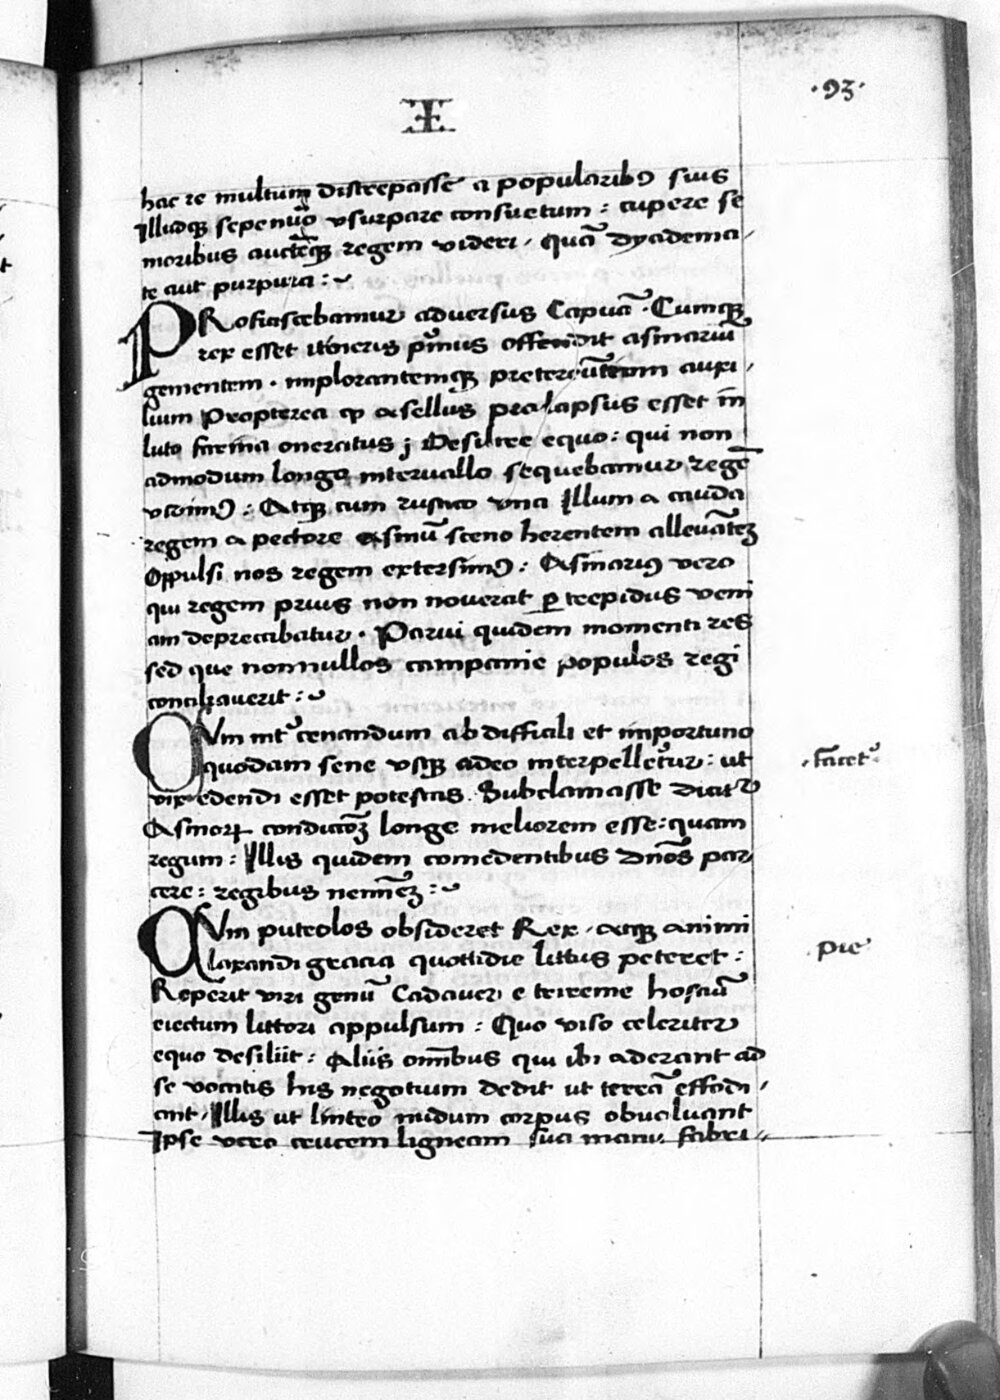 ·93·
hac re multum discrepasse a popularibꝯ suis
Illudqꝫ sepenūo usurpare consuetum : cupere se
moribus auctēqꝫ regem videri , quā dyadema
te aut purpura : ~
PRoficiscebamur adversus Capuā . Cumqꝫ
rex esset itineris pⁱmus offendit asinariū
gementem . implorantemqꝫ pretereūtium auxi ,
lium Propterea ꝙ asellus prolapsus esset in
luto farina oneratus ; Desilire equo : qui non
admodum longo intervallo sequebamur regē
vidimꝯ : Atqꝫ cum rustico una Illum a cauda
regem a pectore asinū sceno herentem allevāteꝫ
Oppulsi nos regem extersimꝯ : Asinariꝯ vero
qui regem prius non noverat ꝑ trepidus veni
am deprecabatur . Parui quidem momenti res
sed que nonnullos campanie populos regi
conciliaverit : ~
CVm intᵉ cenandum ab difficili et importuno
quodam sene usqꝫ adeo interpelleretur : ut
vix edendi esset potestas . Subclamasse dicitᵘʳ
Asinoꝝ condicōꝫ longe meliorem esse : quam
regum : Illis quidem comedentibus dnōs par
cere : regibus neminēꝫ : ~
facetᵉ
CVm puteolos obsideret Rex , atqꝫ animi
laxandi gracia quottidie littus peteret :
pie
Reperit viri genū Cadaver e trireme hosciū
eiectum littori appulsum : Quo viso celeriter
equo desiliit : Aliis omībus qui ibi aderant ad
se vocatis his negotium dedit ut terrā effodi ,
ant , Illis ut linteo nudum corpus obvolvant
Ipse vero crucem ligneam sua manu fabri ,